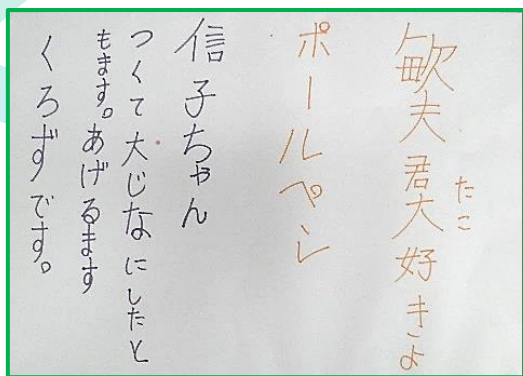 敏夫君大好きよ
たこ
ボールペン
信子ちゃん
つくて大じなにしたと
もます。あげるます
くろずです。